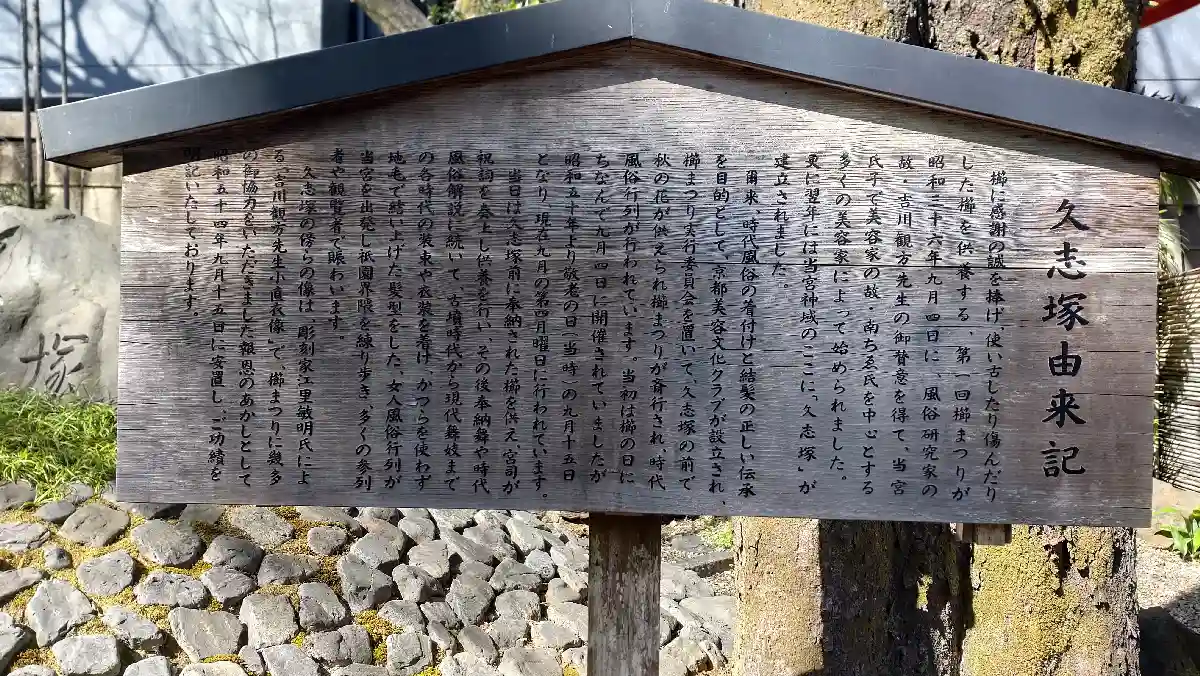 久志塚由来記
櫛に感謝の誠を捧げ、使い古したり傷んだり
した櫛を供養する、第一回櫛まつりが
昭和三十六年九月四日に、風俗研究家の
故・吉川観方先生の御賛意を得て、当宮
氏子で美容家の故・南ちゑ氏を中心とする
多くの美容家によって始められました。
更に翌年には当宮神域のここに、「久志塚」が
建立されました。
爾来、時代風俗の着付けと結髪の正しい伝承
を目的として、京都美容文化クラブが設立され、
櫛まつり実行委員会を置いて、久志塚の前で
秋の花が供えられ櫛まつりが斎行され、時代
風俗行列が行われています。当初は櫛の日に
ちなんで九月四日に開催されていましたが
昭和五十年より敬老の日(当時)の九月十五日
となり、現在九月の第四月曜日に行われています。
当日は久志塚前に奉納された櫛を供え、宮司が
祝詞を奏上し供養を行い、その後奉納舞や時代
風俗解説に続いて、古墳時代から現代舞妓まで
の各時代の装束や衣裳を着け、かつらを使わず
地毛で結い上げた髪型をした、女人風俗行列が
当宮を出発し祇園界隈を練り歩き、多くの参列
者や観覧者で賑わいます。
久志塚の傍らの像は、彫刻家江里敏明氏によ
る、「吉川観方先生小直衣像」で、櫛まつりに幾多
の御協力をいただきました報恩のあかしとして
昭和五十四年九月十五日に安置し、ご功績を
明記いたしております。
塚